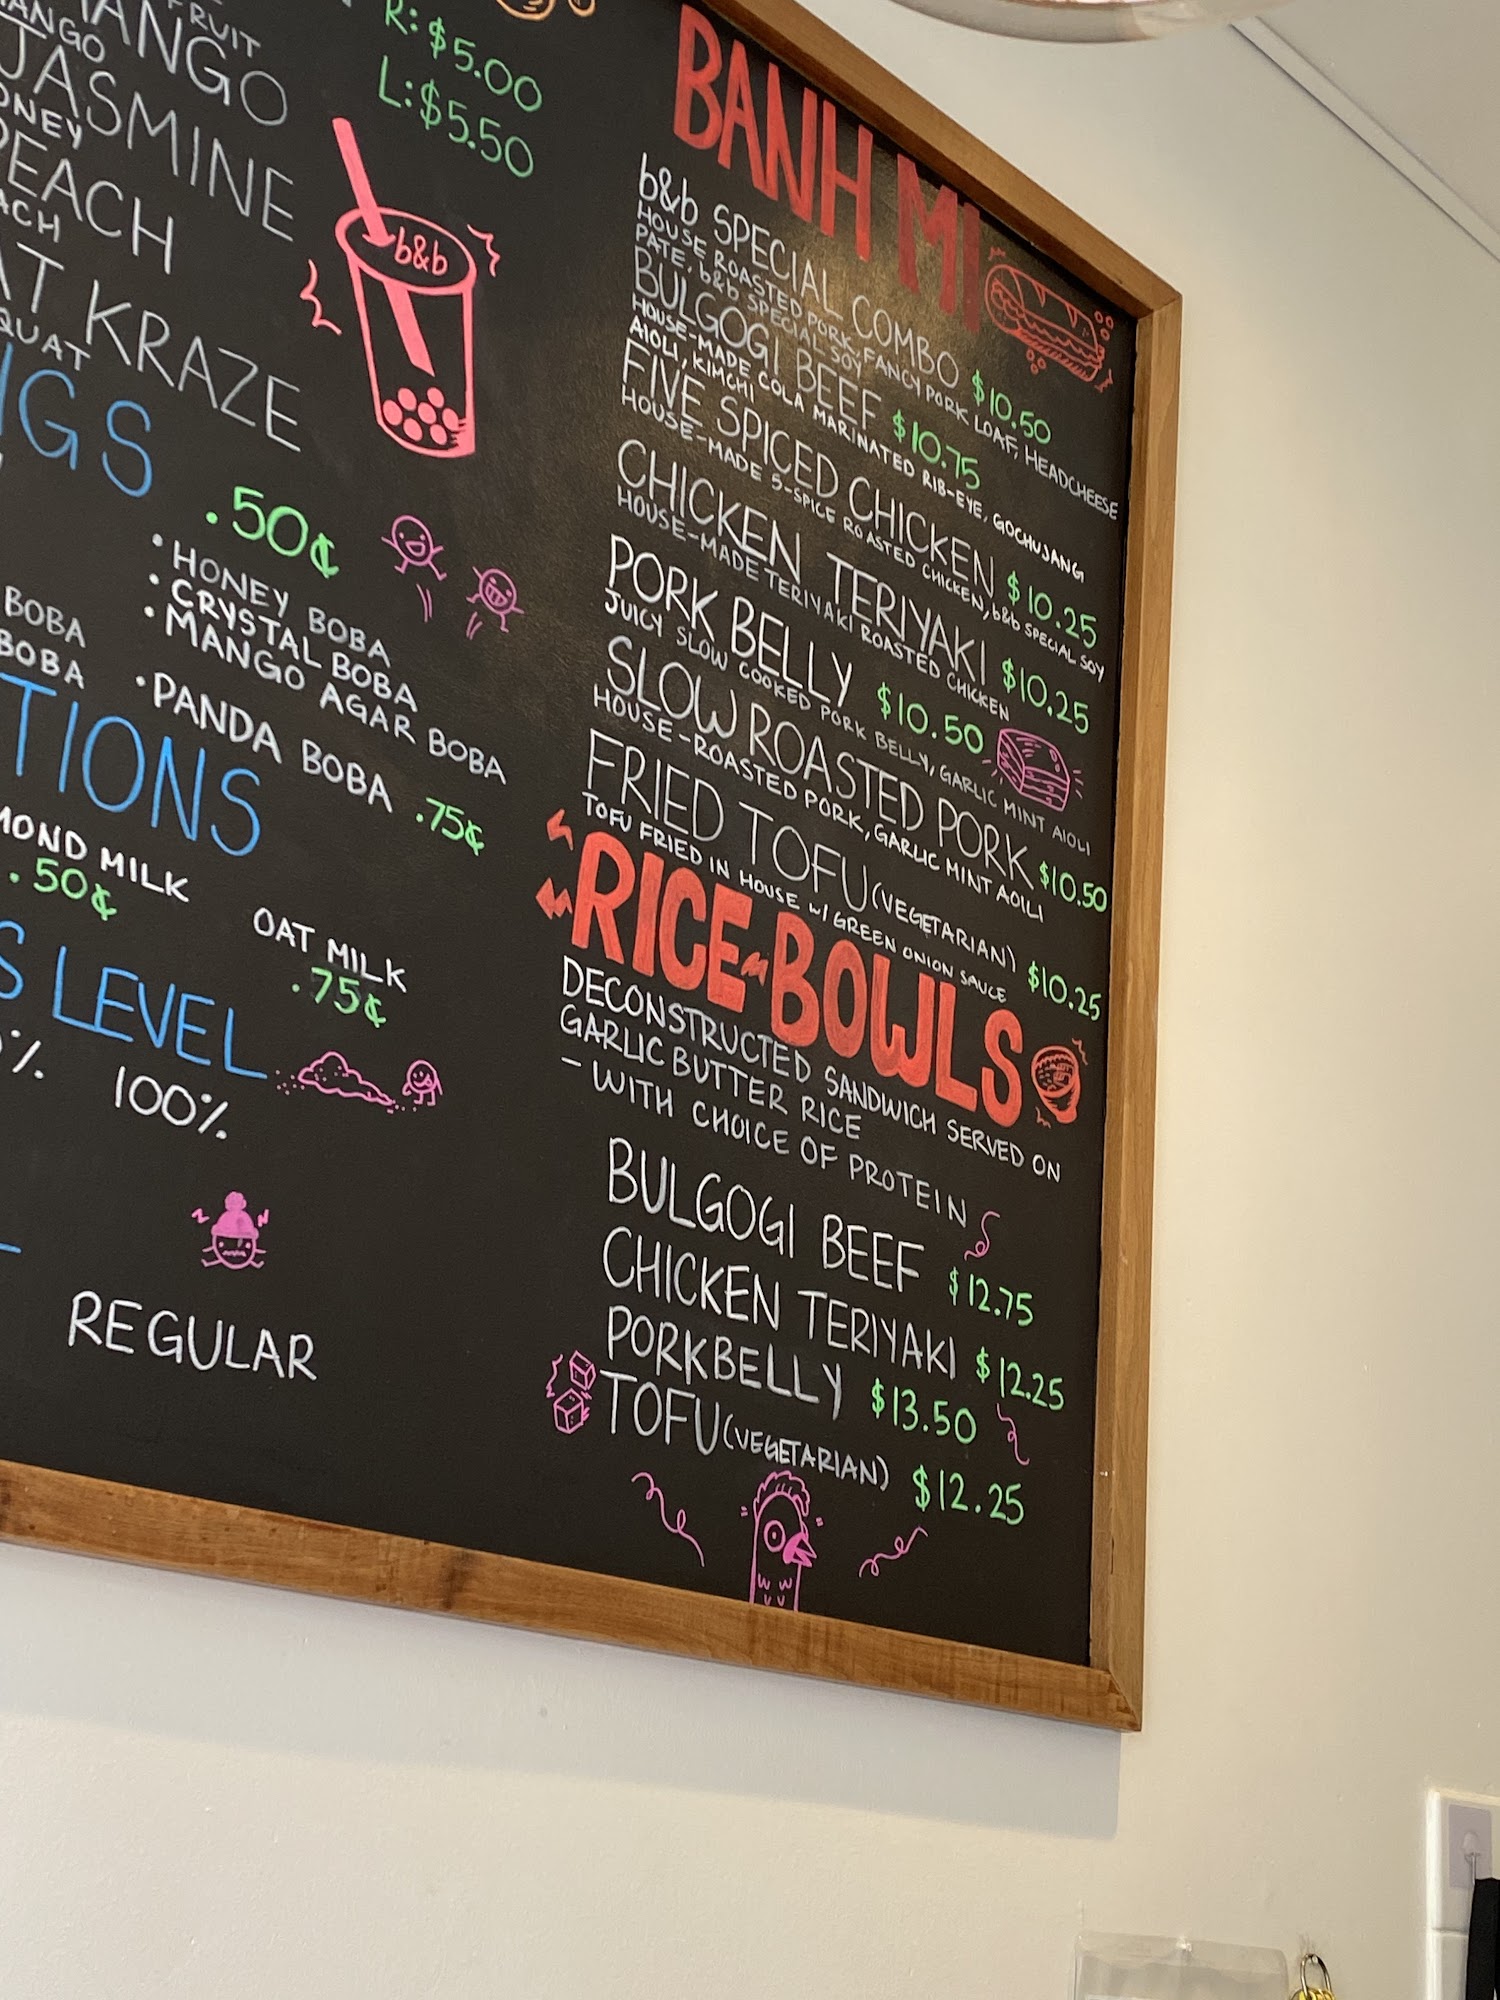 FRUIT
MANGO
JASMINE
PEACH
KRAZE
R: $5.00
L: $5.50
b&b
.50¢
• HONEY BOBA
• CRYSTAL BOBA
• MANGO AGAR BOBA
• PANDA BOBA .75¢
BOBA
BOBA
MILK
.50¢
OAT MILK
.75¢
LEVEL
100%
REGULAR
BANH MI
b&b SPECIAL COMBO $10.50
HOUSE ROASTED PORK, FANCY PORK LOAF, HEADCHEESE
PATE, b&b SPECIAL SOY
BULGOGI BEEF $10.75
HOUSE-MADE COLA MARINATED RIB-EYE, GOCHUJANG
AIOLI, KIMCHI
FIVE SPICED CHICKEN $10.25
HOUSE-MADE 5-SPICE ROASTED CHICKEN, b&b SPECIAL SOY
CHICKEN TERIYAKI $10.25
HOUSE-MADE TERIYAKI ROASTED CHICKEN
PORK BELLY $10.50
JUICY SLOW COOKED PORK BELLY, GARLIC MINT AIOLI
SLOW ROASTED PORK $10.50
HOUSE-ROASTED PORK, GARLIC MINT AOILI
FRIED TOFU (VEGETARIAN) $10.25
TOFU FRIED IN HOUSE W/ GREEN ONION SAUCE
RICE BOWLS
DECONSTRUCTED SANDWICH SERVED ON
GARLIC BUTTER RICE
- WITH CHOICE OF PROTEIN
BULGOGI BEEF $12.75
CHICKEN TERIYAKI $12.25
PORKBELLY $13.50
TOFU (VEGETARIAN) $12.25